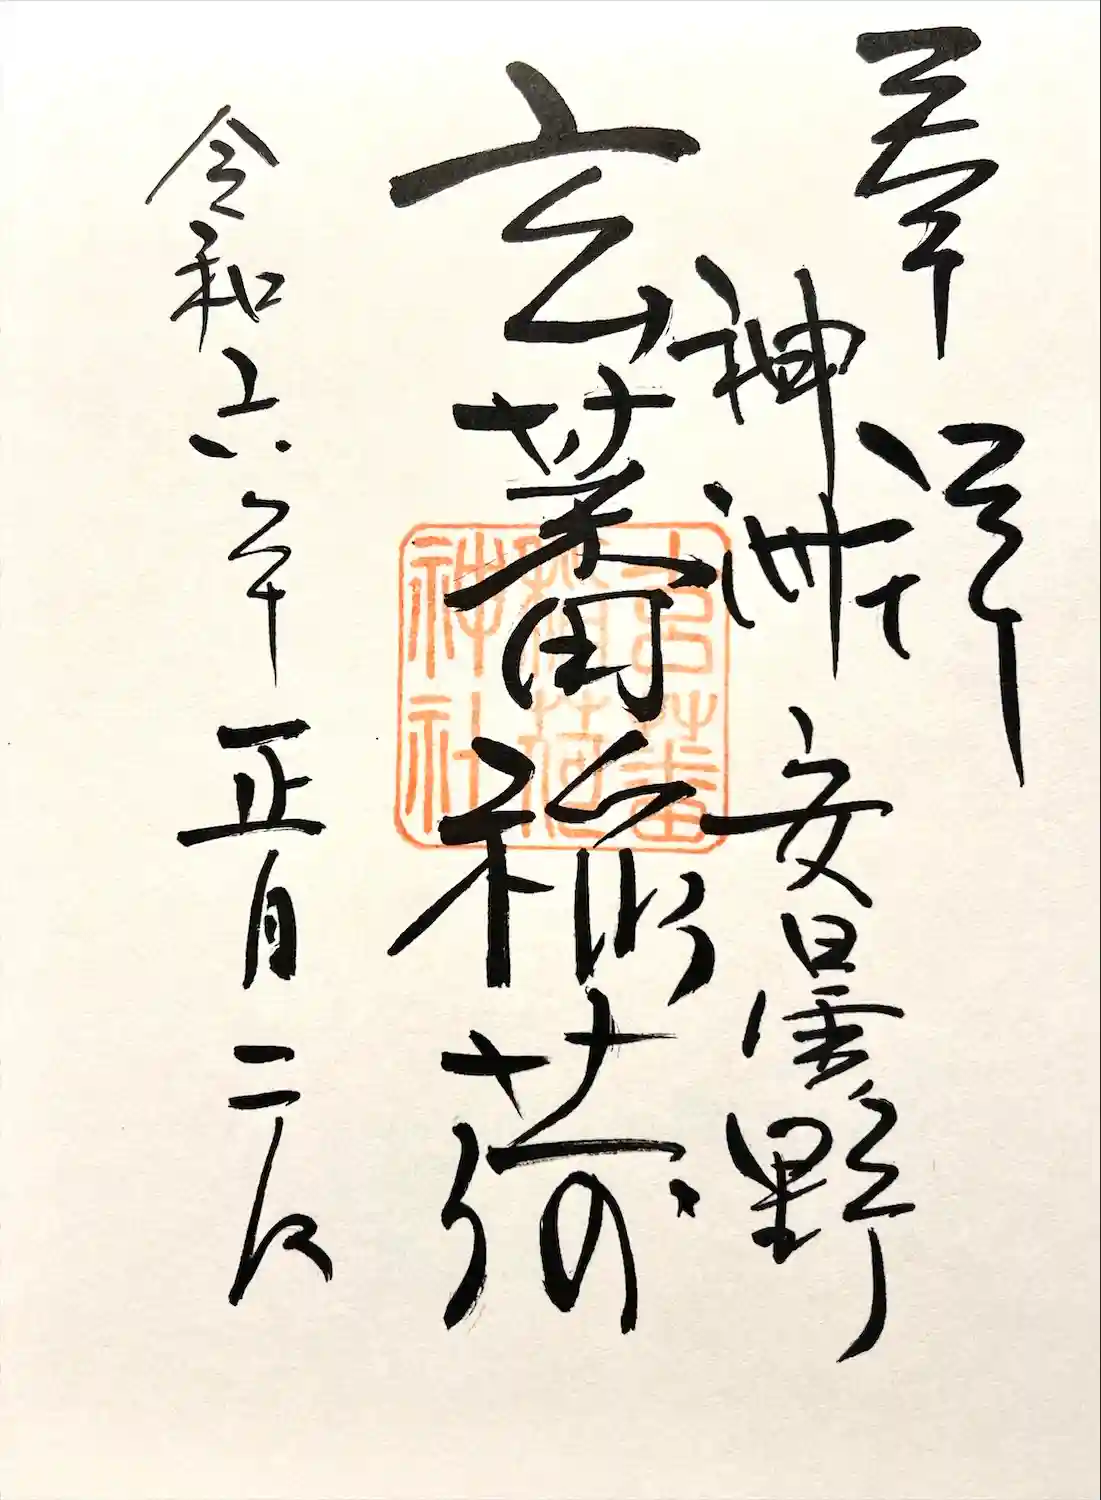 奉拝
神洲
安曇野
玄蕃稲荷
玄蕃
稲荷
神社
令和六年正月二日